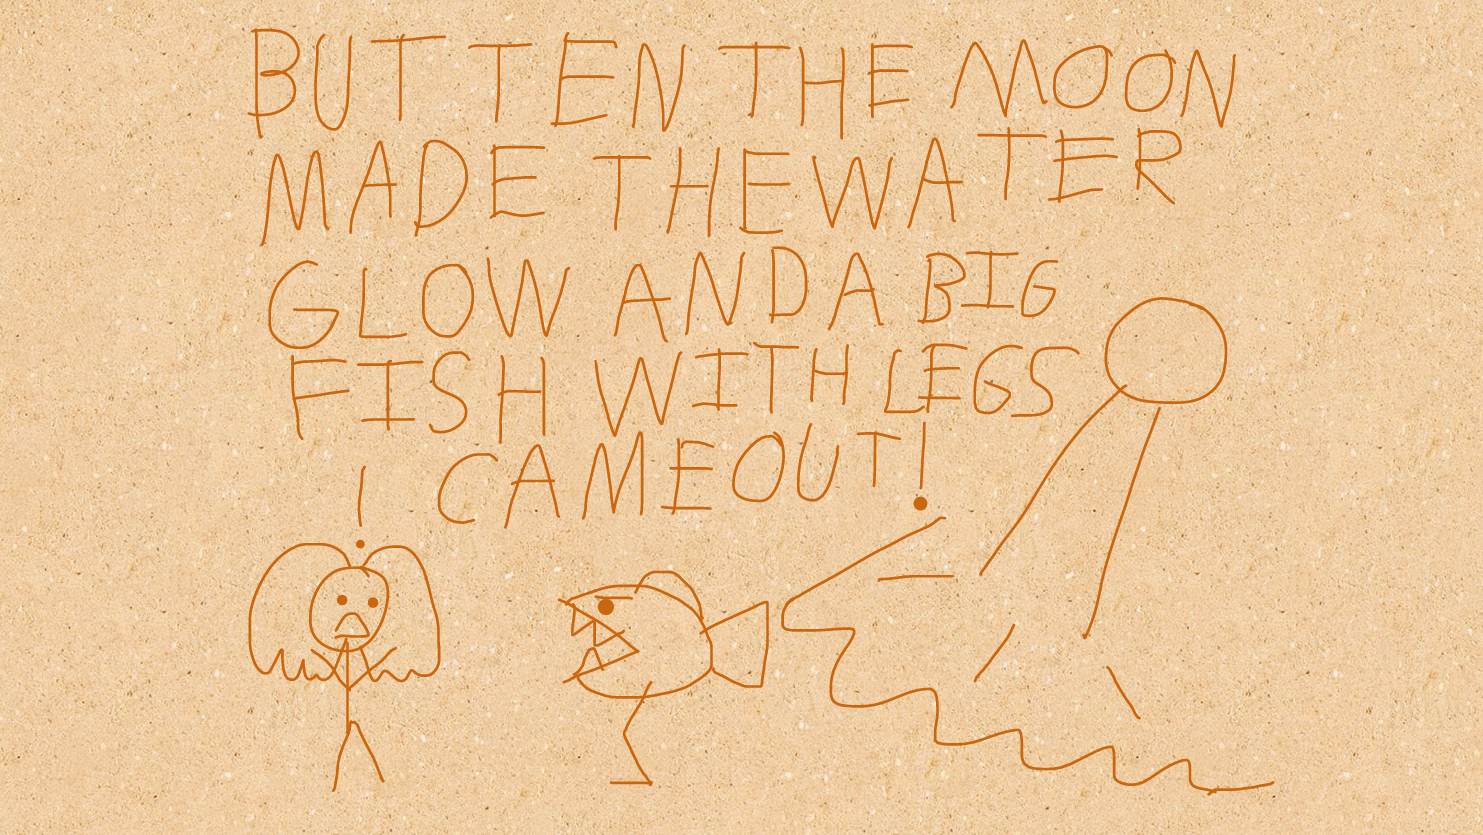 BUT TEN THE MOON
MADE THE WATER
GLOW AND A BIG
FISH WITH LEGS
CAME OUT!
!